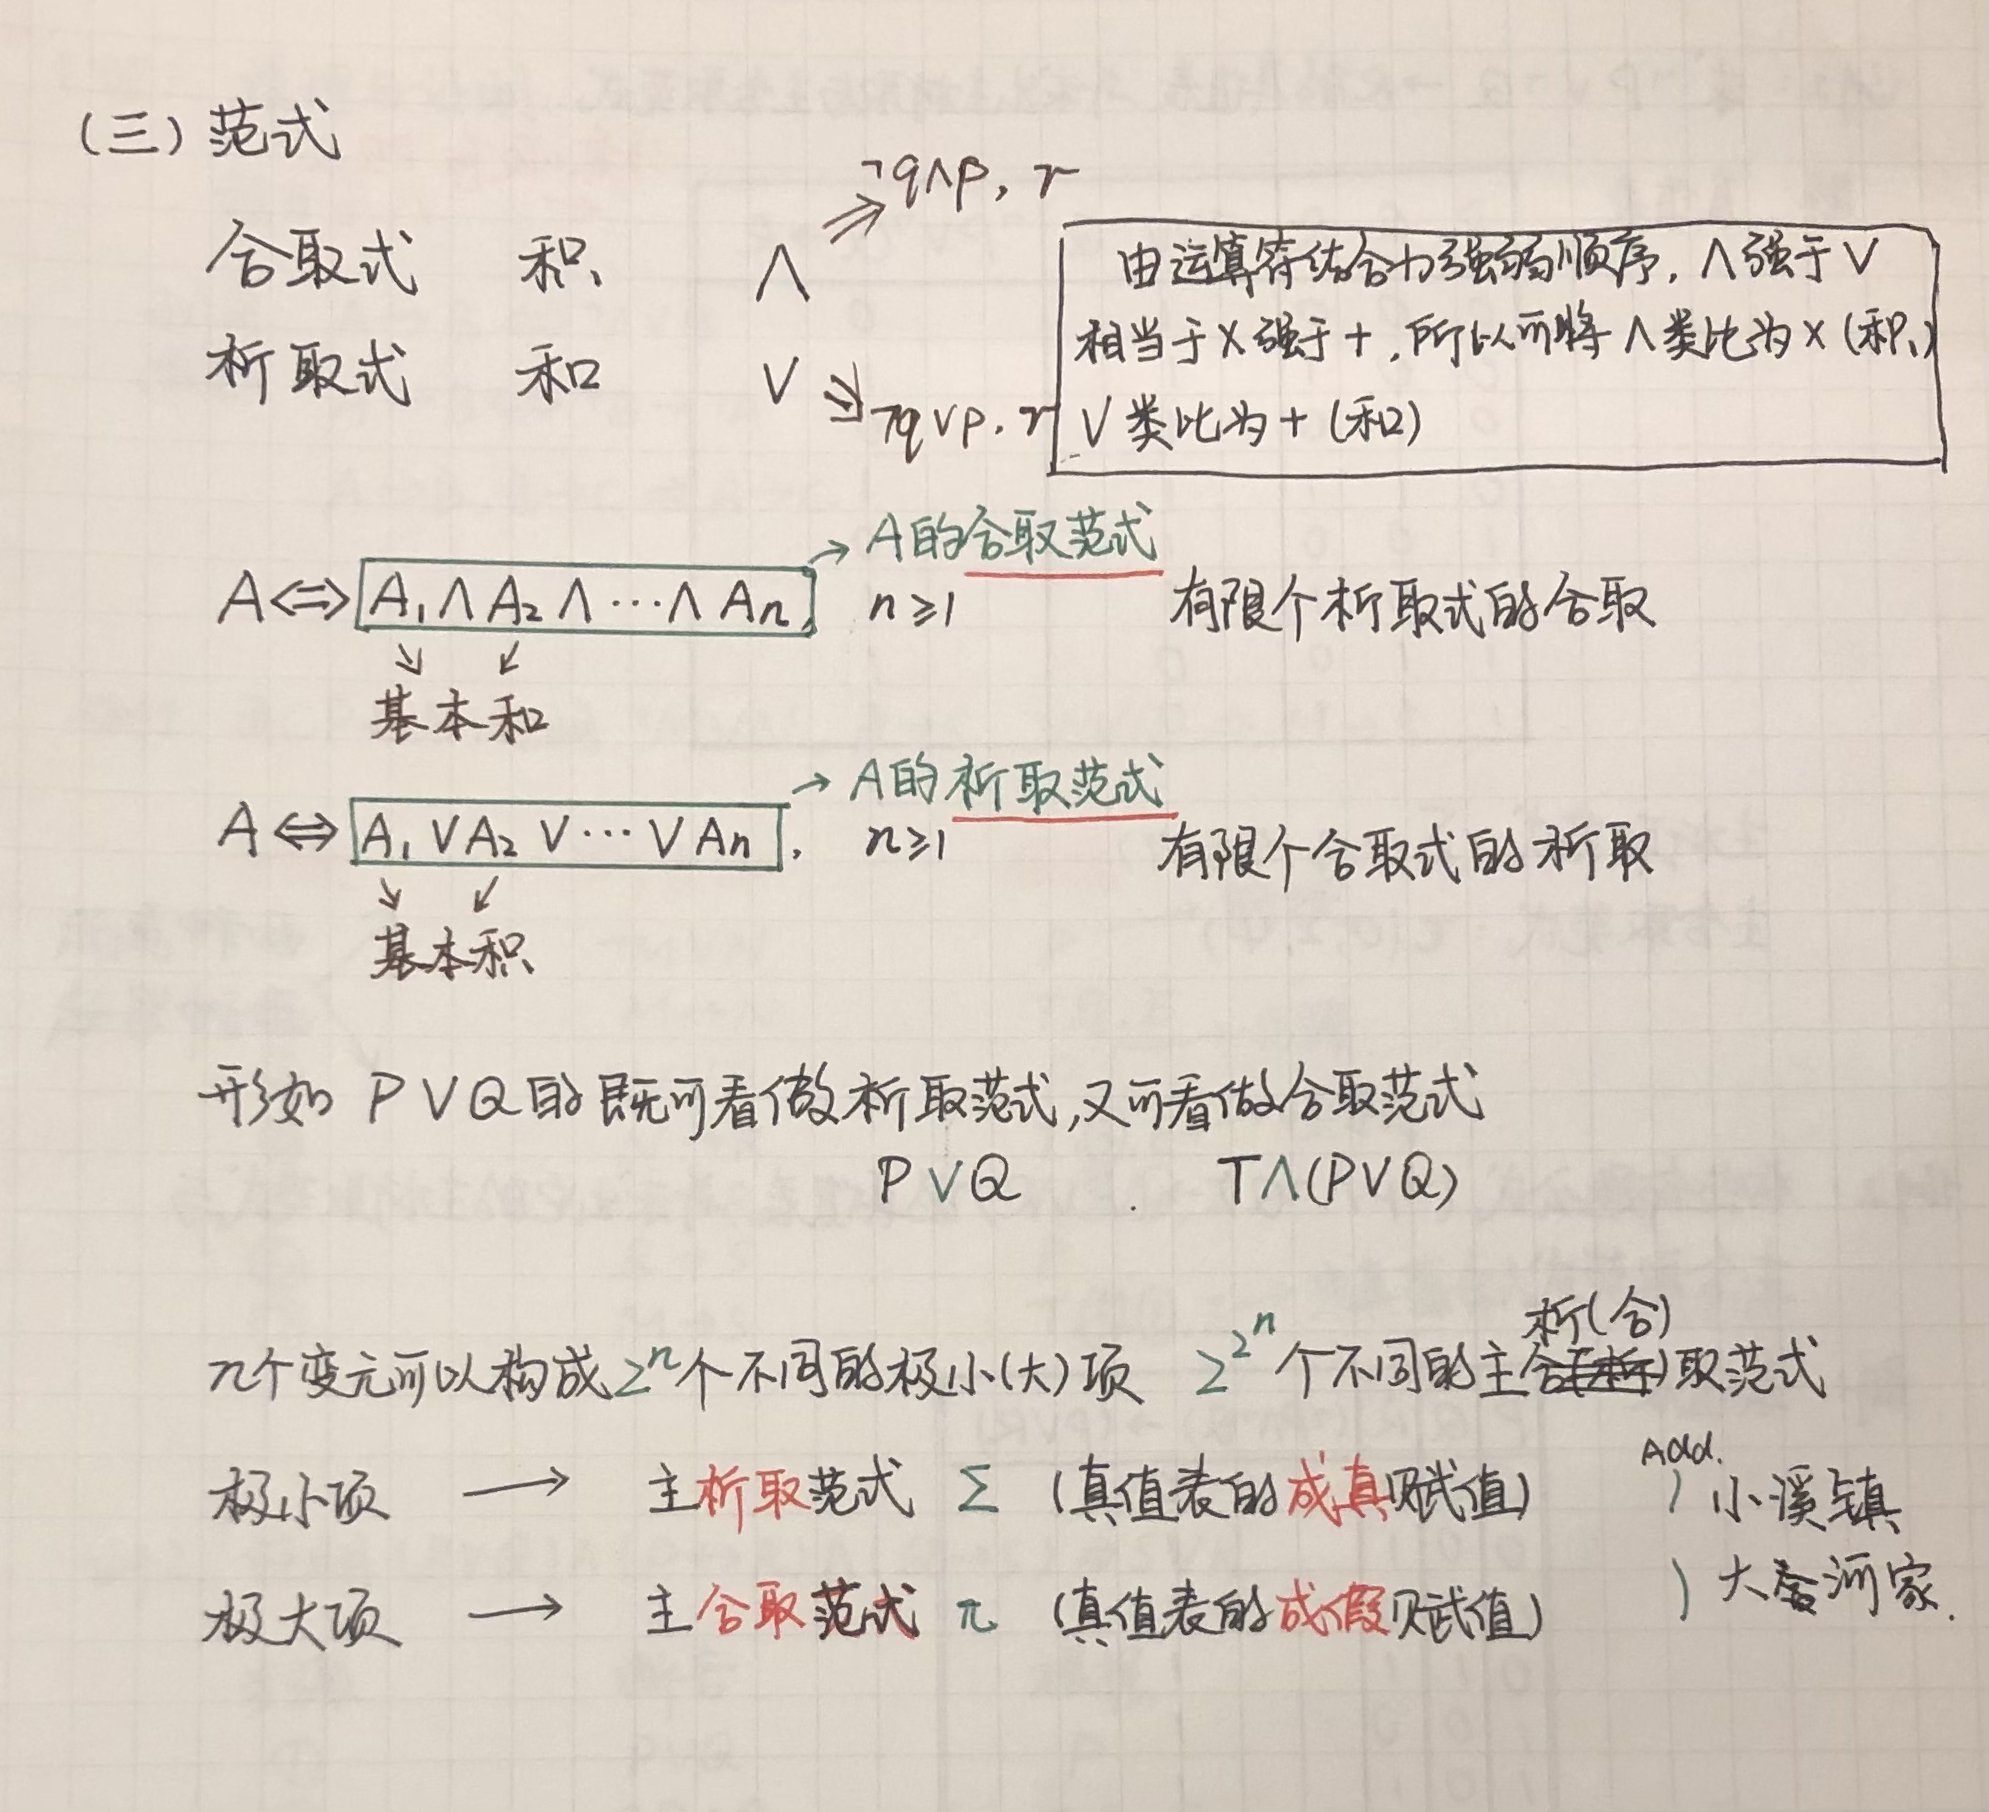 (三) 范式
¬q∧p, r
合取式 积 ∧
析取式 和 ∨
¬q∨p, r
由运算符结合力强弱顺序, ∧强于∨
相当于×强于+, 所以可将∧类比为×(积)
∨类比为+(和)
→ A的合取范式
A⇔ A₁∧A₂∧…∧Aₙ, n≥1 有限个析取式的合取
基本和
→ A的析取范式
A⇔ A₁∨A₂∨…∨Aₙ, n≥1 有限个合取式的析取
基本积
形如 P∨Q的既可看做析取范式,又可看做合取范式
P∨Q T∧(P∨Q)
析(合)
n个变元可以构成2ⁿ个不同的极小(大)项 2^2ⁿ个不同的主合(析)取范式
Add.
极小项 → 主析取范式 Σ (真值表的成真赋值) ) 小溪镇
极大项 → 主合取范式 π (真值表的成假赋值) ) 大 河家.